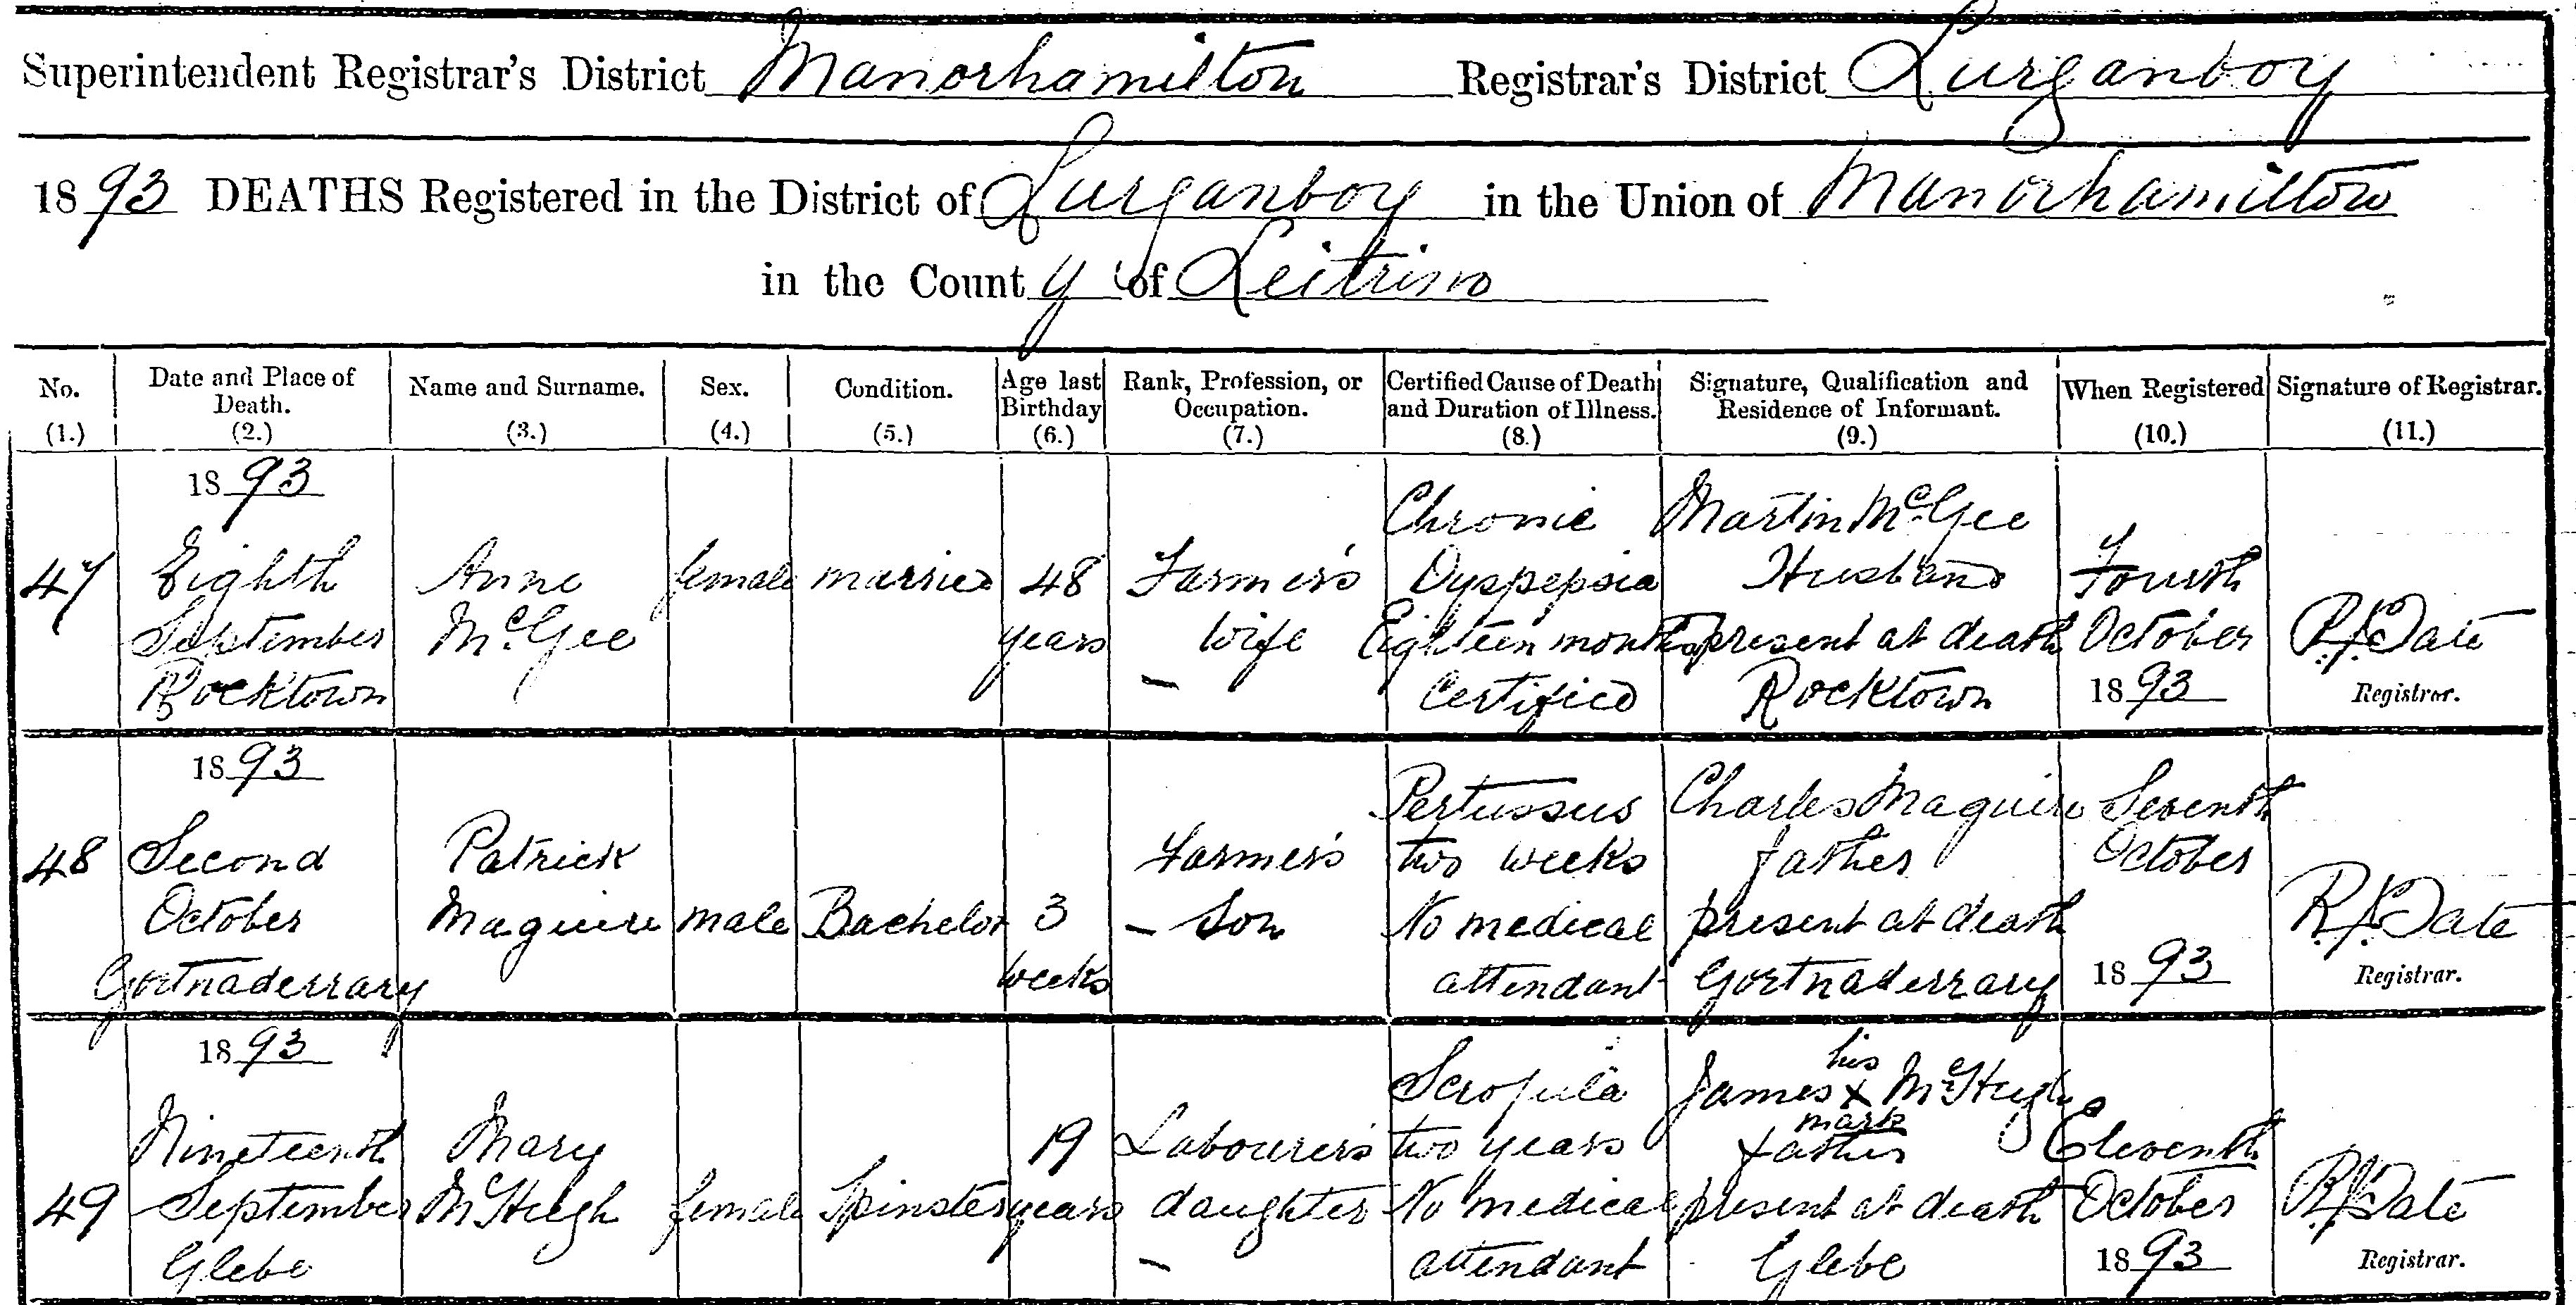 Superintendent Registrar's District Manorhamilton Registrar's District Lurganboy
1893 DEATHS Registered in the District of Lurganboy in the Union of Manorhamilton
in the County of Leitrim
No. Date and Place of Death. Name and Surname. Sex. Condition. Age last Birthday Rank, Profession, or Occupation. Certified Cause of Death and Duration of Illness. Signature, Qualification and Residence of Informant. When Registered Signature of Registrar.
(1.) (2.) (3.) (4.) (5.) (6.) (7.) (8.) (9.) (10.) (11.)
1893
47
Eighth
September
Rocktown
Anne
McGee
female
married
48
years
Farmer's
wife
Chronic
Dyspepsia
Eighteen months
Certified
Martin McGee
Husband
present at death
Rocktown
Fourth
October
1893
R.J. Tate
Registrar.
1893
48
Second
October
Gortnaderrary
Patrick
Maguire
male
Bachelor
3
weeks
Farmer's
– Son
Pertussus
two weeks
No medical
attendant
Charles Maguire
father
present at death
Gortnaderrary
Seventh
October
1893
R.J. Tate
Registrar.
1893
49
Nineteenth
September
Glebe
Mary
McHugh
female
Spinster
19
years
Labourer's
daughter
–
Scrofula
two years
No medical
attendant
his
James x McHugh
mark
father
present at death
Glebe
Eleventh
October
1893
R.J. Tate
Registrar.